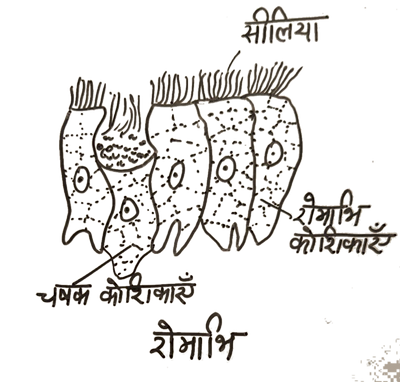 सीलिया
रोमाभि
कोशिकाएँ
चषक कोशिकाएँ
रोमाभि